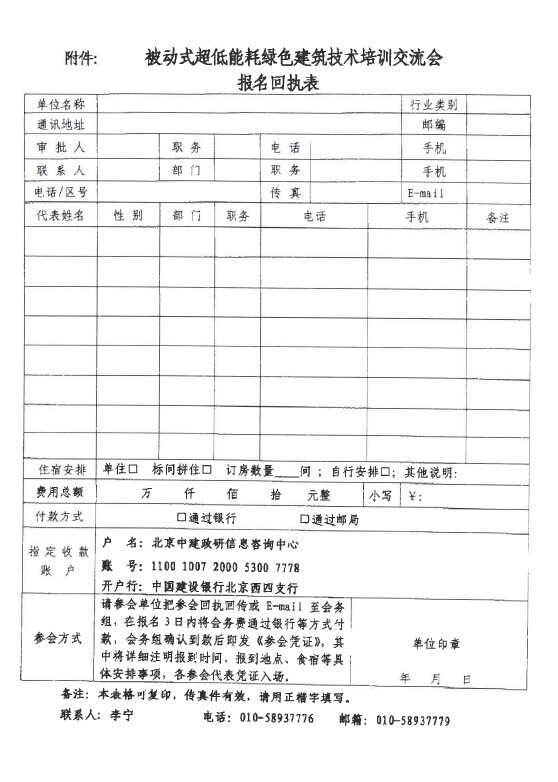 附件: 被动式超低能耗绿色建筑技术培训交流会
报名回执表
单位名称 行业类别
通讯地址 邮编
审批人 职务 电话 手机
联系人 部门 职务 手机
电话/区号 传真 E-mail
代表姓名 性别 部门 职务 电话 手机 备注
住宿安排 单住□ 标间拼住□ 订房数量____间 ; 自行安排□; 其他说明:
费用总额 万 仟 佰 拾 元整 小写 ¥:
付款方式 □通过银行 □通过邮局
指定收款
账户
户 名: 北京中建政研信息咨询中心
账 号: 1100 1007 2000 5300 7778
开户行: 中国建设银行北京西四支行
参会方式
请参会单位把参会回执回传或 E-mail 至会务
组; 在报名 3 日内将会务费通过银行等方式付
款, 会务组确认到款后即发《参会凭证》, 其
中将详细注明报到时间、报到地点、食宿等具
体安排事项, 各参会代表凭证入场。
单位印章
年 月 日
备注: 本表格可复印, 传真件有效, 请用正楷字填写。
联系人: 李宁 电话: 010-58937776 邮箱: 010-58937779